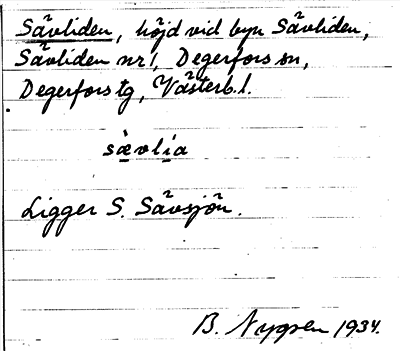 Sävliden, höjd vid byn Sävliden,
Sävliden nr 1, Degerfors sn,
Degerfors tg, Västerb. l.
sævlia
Ligger S. Sävsjön.
B. Nygren 1934.